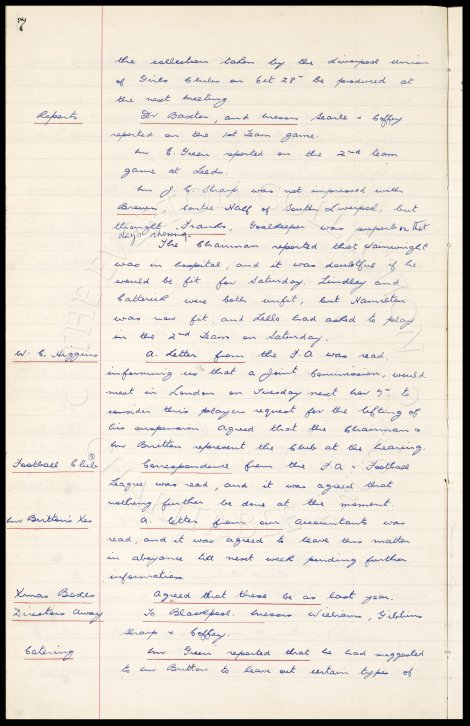 7
the collection taken by the Liverpool Union
of Girls Clubs on Oct 28" be produced at
the next meeting.
Reports
Dr Baxter, and Messrs Searle & Coffey
reported on the 1st Team game.
Mr C. Green reported on the 2nd Team
game at Leeds.
Mr J. C. Sharp was not impressed with
Brown, Centre Half of South Liverpool, but
thought Franks, Goalkeeper was superb on that
day's showing.
The Chairman reported that Wainwright
was in hospital, and it was doubtful if he
would be fit for Saturday. Lindley and
Catterick were both unfit, but Hamilton
was now fit and Lello had asked to play
in the 2nd Team on Saturday.
W. C. Higgins
A. Letter from the F.A was read,
informing us that a Joint Commission, would
meet in London on Tuesday next Nov 9" to
consider this players request for the lifting of
his suspension. Agreed that the Chairman &
Mr Britton represent the Club at the hearing.
Football Club
Correspondence from the F A & Football
League, was read, and it was agreed that
nothing further be done at the moment.
Mr Britton's
A. letter from our Accountants was
read, and it was agreed to leave this matter
in abeyance till next week pending further
information.
Xmas Boxes
Agreed that these be as last year.
Directors Away
To Blackpool. Messrs Williams, Gibbins
Sharp & Coffey.
Catering
Mr Green reported that he had suggested
to Mr Britton to leave out certain types of